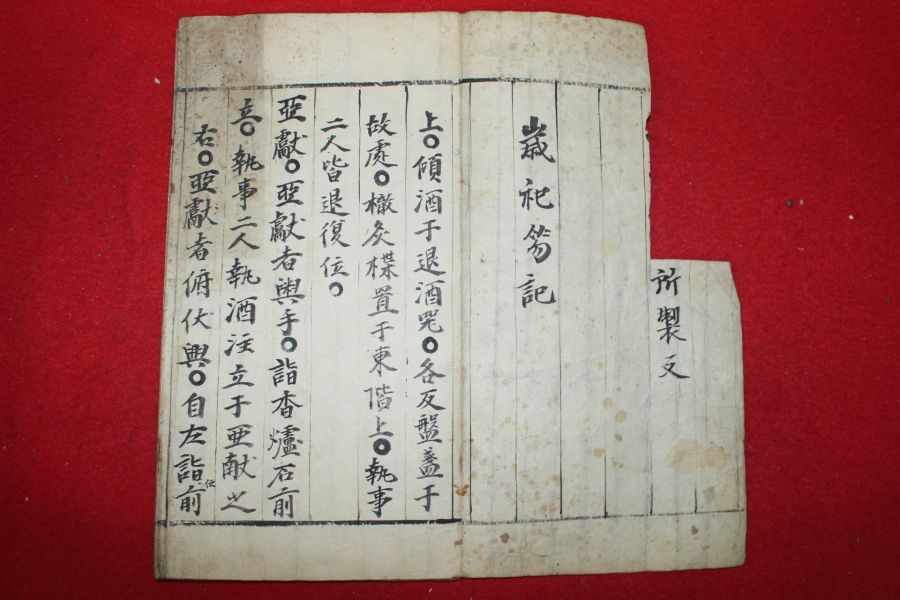 所製文
嵗祀笏記
上○傾酒于退酒器○各反盤盞于
故處○撤炙楪置于東階上○執事
二人皆退復位○
亞獻○亞獻者興手○詣香爐石前
立○執事二人執酒注立于亞献之
右○亞獻者俯伏興○自左詣位前